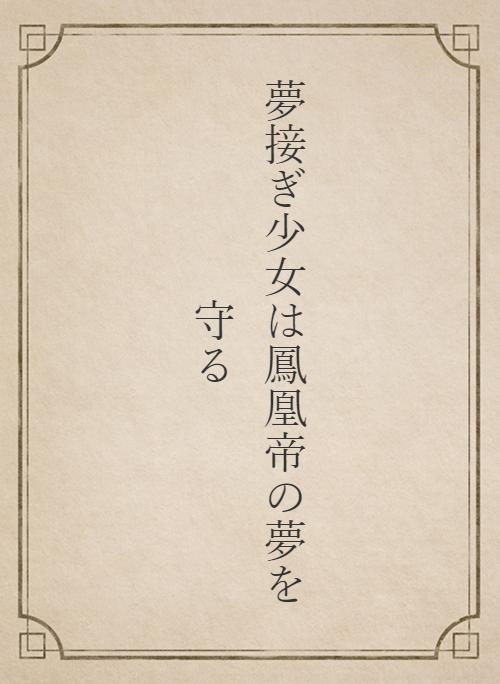 夢接ぎ少女は鳳凰帝の夢を
守る